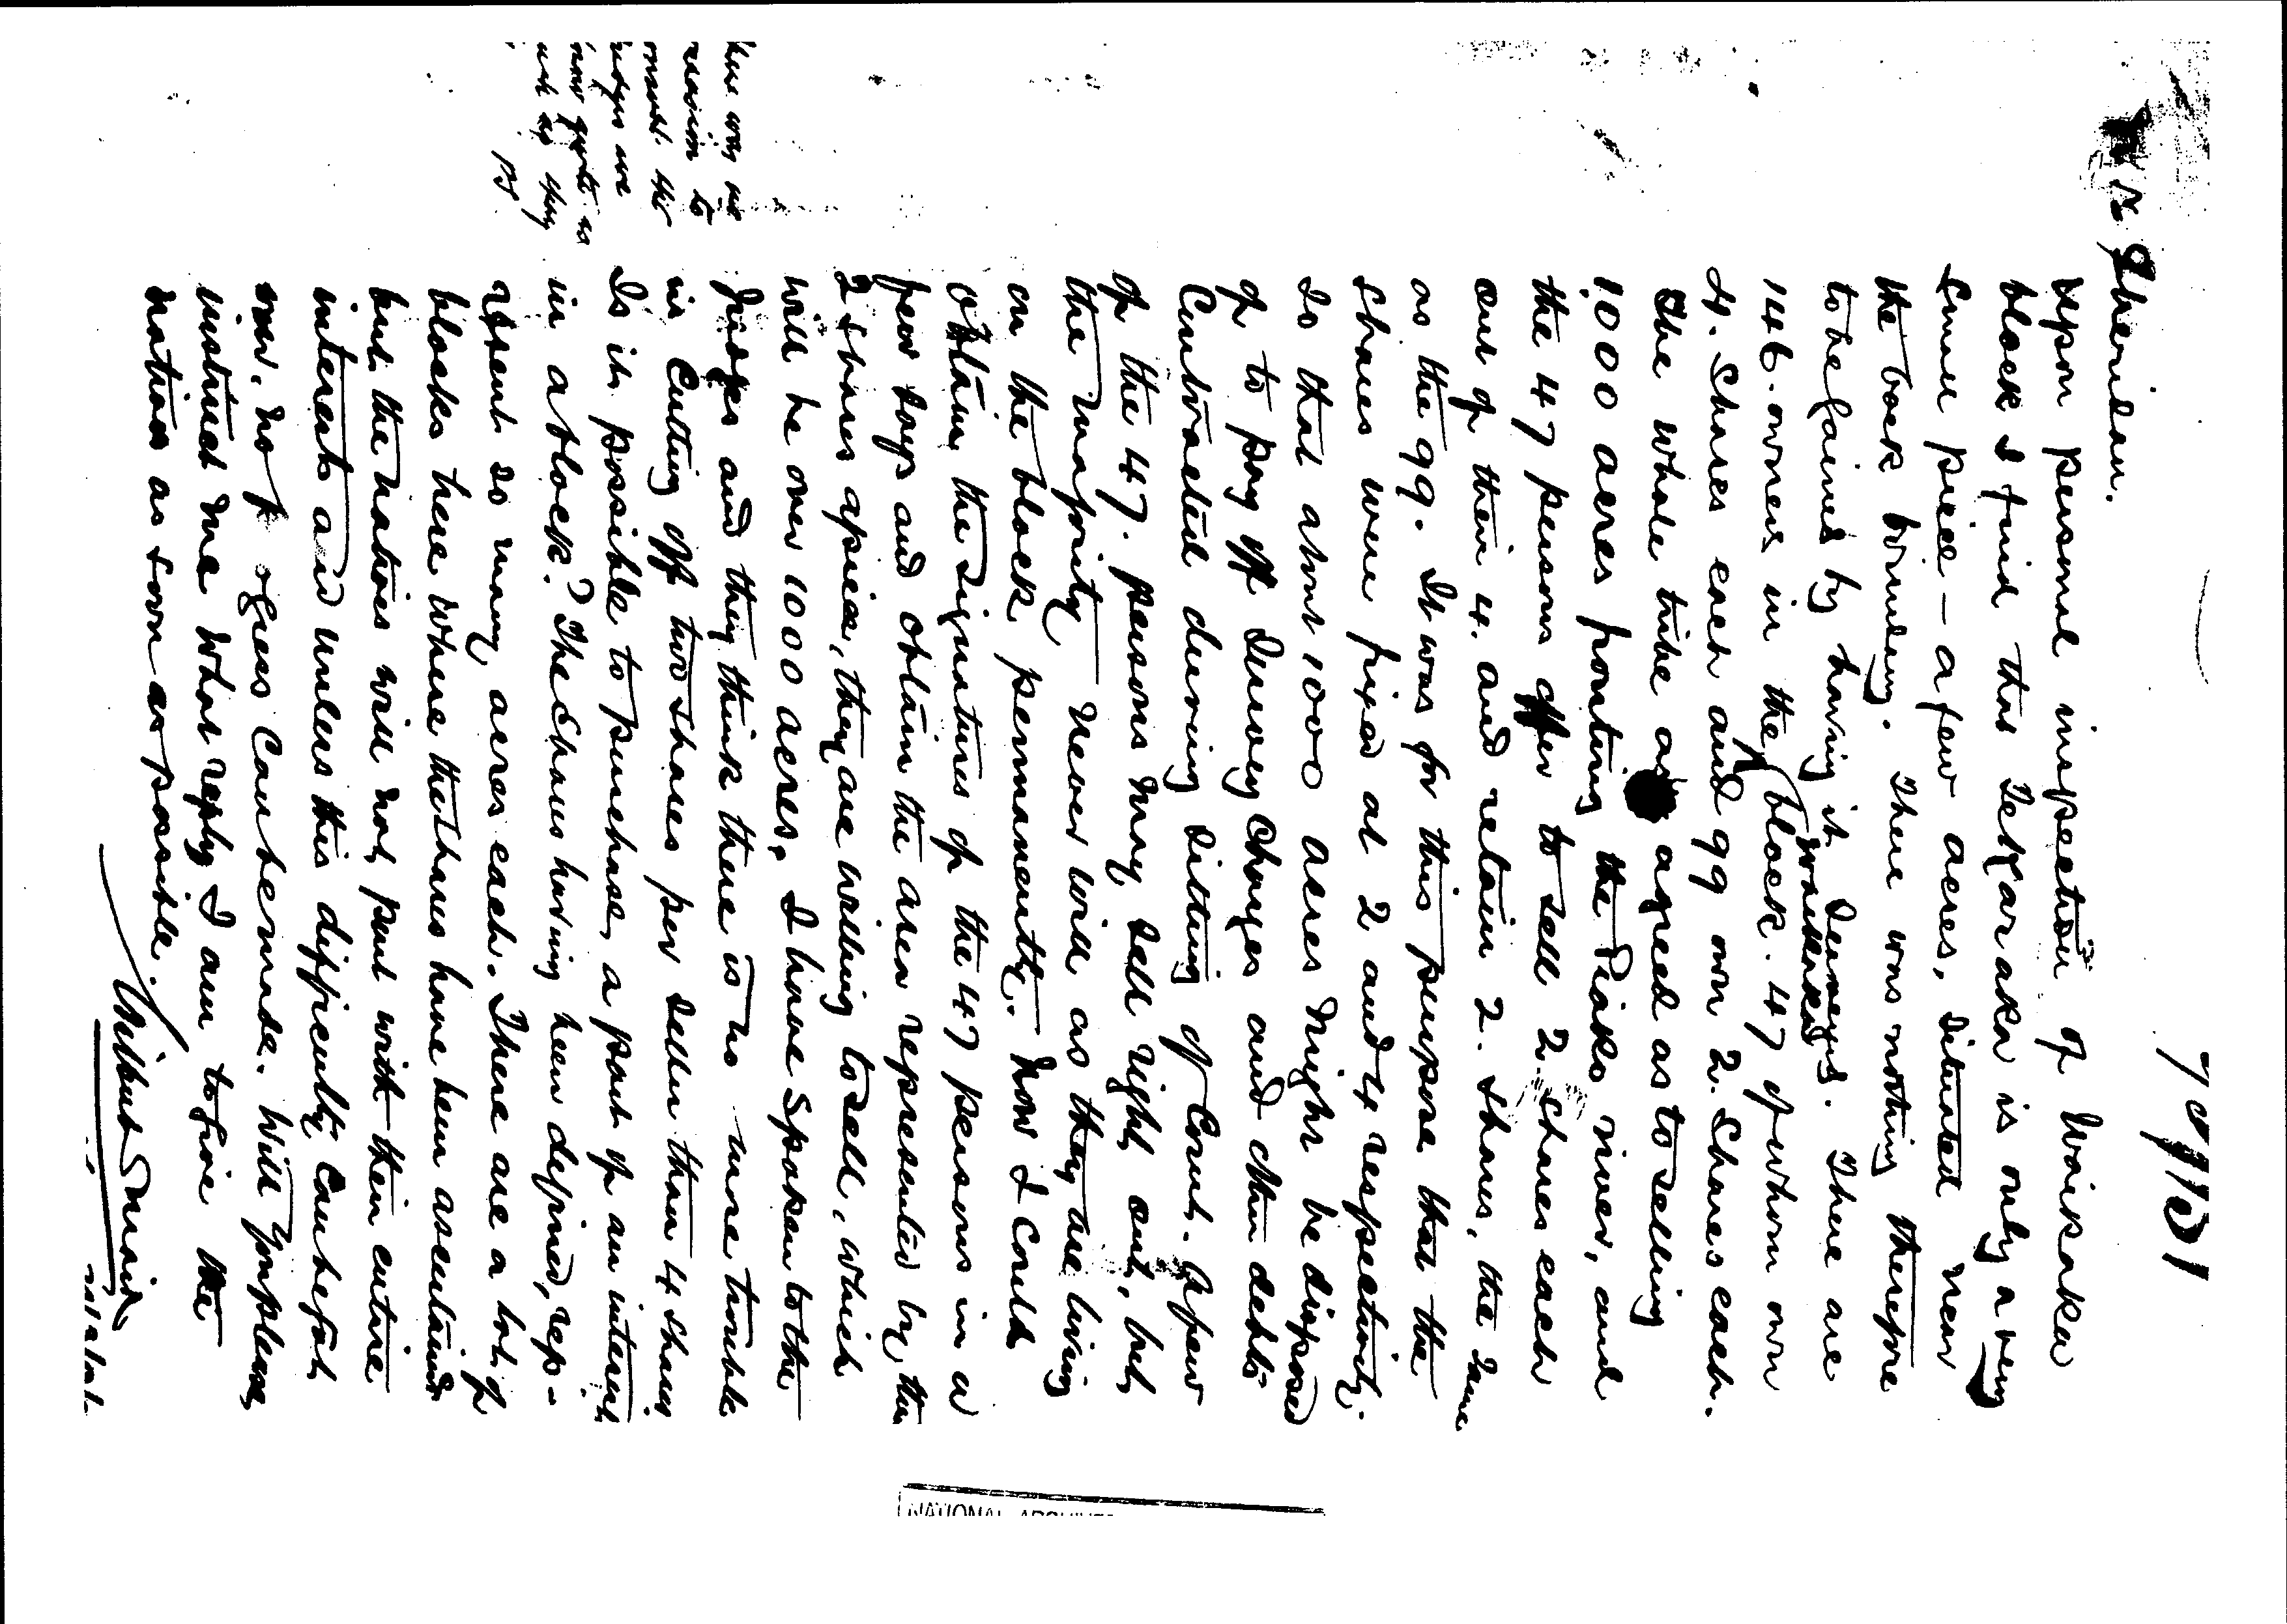 Mr Sheridan.
Upon personal inspection of Waikaka
block I find that Tetaraka is only a very
small piece – a few acres, situated near
the back boundary. There was nothing therefore
to be gained by having it surveyed. There are
Waikaka
146. owners in the block. 47 of whom own
4. Shares each and 99 own 2. Shares each.
The whole tribe are agreed as to selling
1000 acres fronting the Piako river, and
the 47 persons offer to sell 2 shares each
out of their 4. and retain 2. shares, the same
as the 99. It was for this purpose that the
shares were fixed at 2 and 4 respectively.
So that about 1000 acres might be disposed
of to pay off survey charges and other debts
Contracted during sitting of Court. A few
of the 47. persons may sell right out, but
the majority never will as they are living
on the block permanently. Now I could
obtain the signatures of the 47 persons in a
few days and obtain the area represented by their
2 shares apiece, they are willing to sell, which
will be over 1000 acres. I have spoken to the
Judges and they think there is no more trouble
in Cutting off two shares per seller than 4 shares
Is it possible to purchase a part of an interest
in a block? The Shares having been defined, rep-
resent so many acres each. There are a lot of
blocks here where the shares have been ascertained
but the natives will not part with their entire
interests and unless this difficulty can be got
over. no progress can be made. Will you please
instruct me what reply I am to give the
natives as soon as possible.
Gilbert Mair
here was no
to
the
Judges are
as
such as they
NATIONAL ARCHIVES